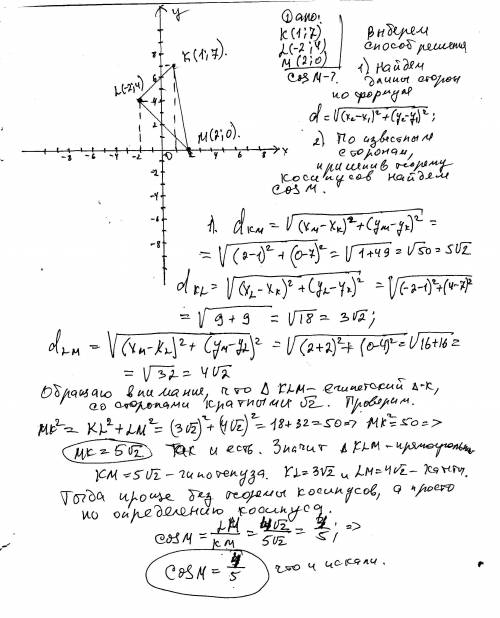 y
K(1;7).
L(-2;4)
6
4
2
M(2;0).
-8 -6 -4 -2 2 4 6 8 x
-2
-4
-6
-8
Дано:
K(1;7)
L(-2;4)
M(2;0)
cos M-?
Выберем
способ решения
1) Найдем
длины сторон
по формуле
d=√(x₂-x₁)²+(y₂-y₁)²;
2) По известным
сторонам,
применив теорему
косинусов найдем
cos M.
1. d KM = √(xM-xK)²+(yM-yK)² =
= √(2-1)²+(0-7)² = √1+49 = √50 = 5√2
d KL = √(xL-xK)²+(yL-yK)² = √(-2-1)²+(4-7)²
= √9+9 = √18 = 3√2;
d LM = √(xM-xL)²+(yM-yL)² = √(2+2)²+(0-4)² = √16+16 =
= √32 = 4√2
Обращаю внимание, что Δ KLM- египетский Δ-к,
со сторонами кратными √2. Проверим.
MK² = KL²+LM² = (3√2)²+(4√2)² = 18+32=50=> MK²=50=>
MK=5√2 Так и есть. Значит Δ KLM-прямоугольн
KM=5√2-гипотенуза. KL=3√2 и LM=4√2-катеты.
Тогда проще без теоремы косинусов, а просто
по определению косинуса.
cos M = LM/KM = 4√2/5√2 = 4/5; =>
cos M = 4/5 что и искали.